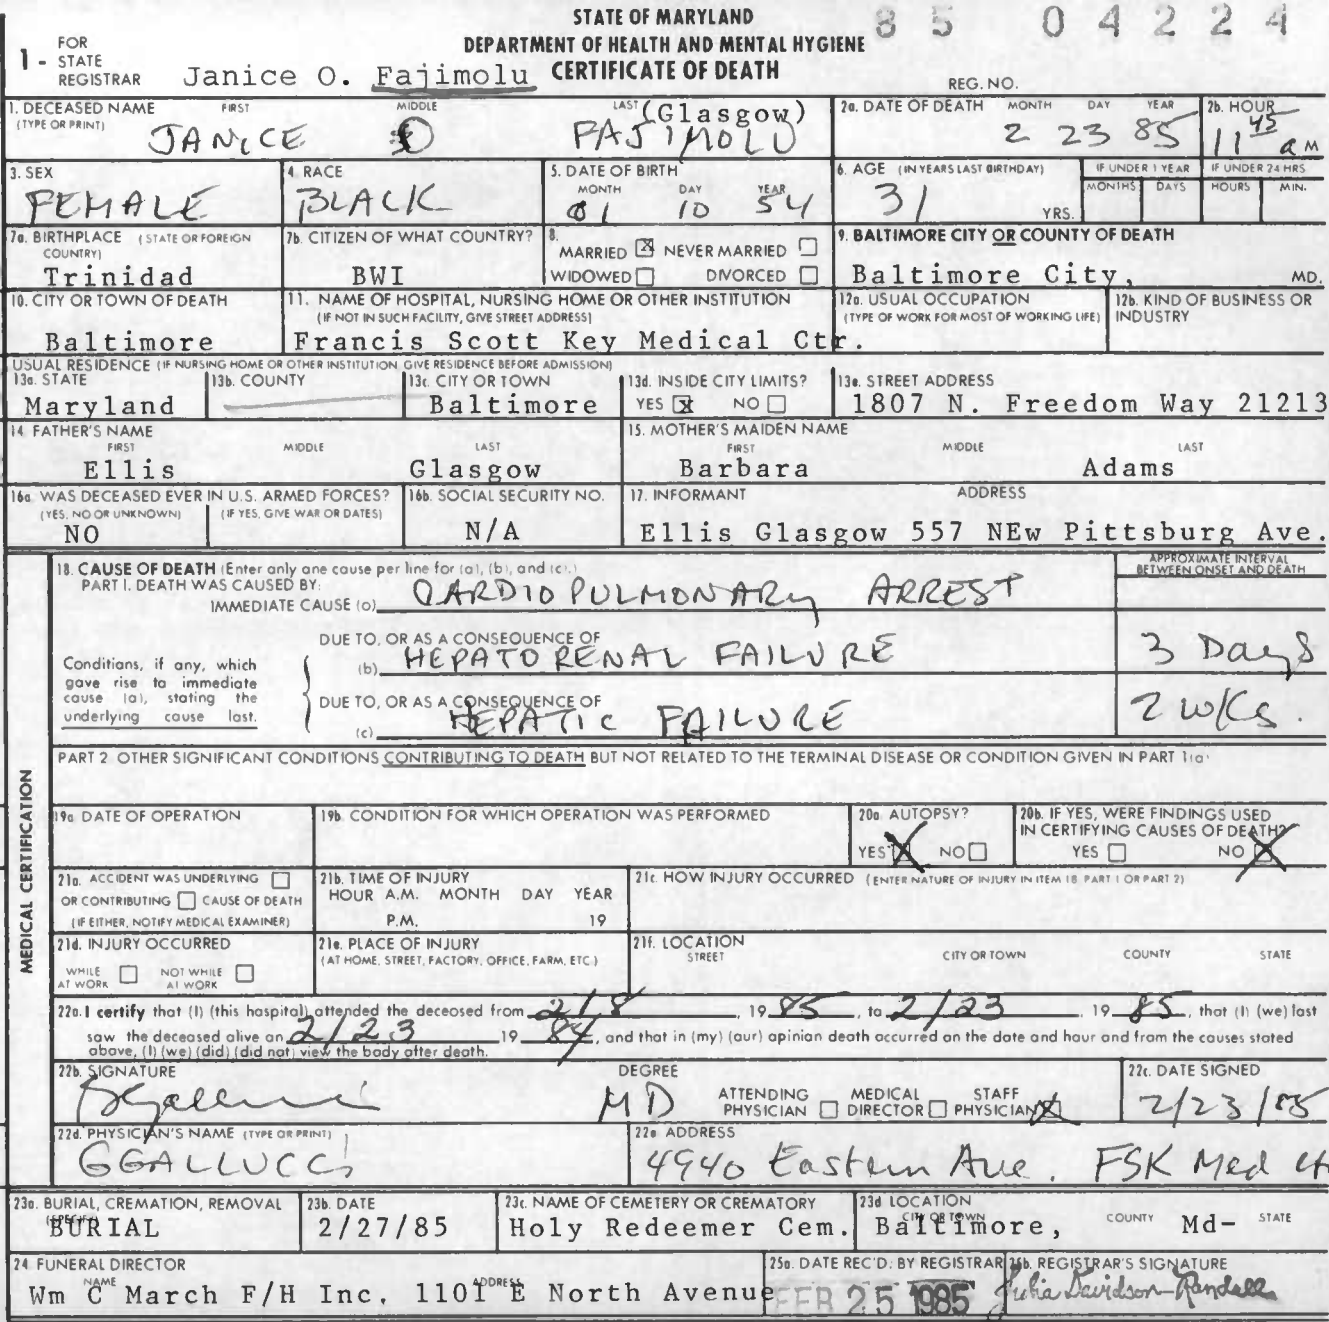 STATE OF MARYLAND
DEPARTMENT OF HEALTH AND MENTAL HYGIENE
CERTIFICATE OF DEATH
85 04224
1 - FOR STATE REGISTRAR
Janice O. Fajimolu
REG. NO.
1. DECEASED NAME (TYPE OR PRINT) FIRST MIDDLE LAST (Glasgow)
JANICE O FAJIMOLU
2a. DATE OF DEATH MONTH DAY YEAR
2 23 85
2b. HOUR
11 45 a M
3. SEX
FEMALE
4. RACE
BLACK
5. DATE OF BIRTH MONTH DAY YEAR
01 10 54
6. AGE (IN YEARS LAST BIRTHDAY)
31 YRS.
IF UNDER 1 YEAR MONTHS DAYS
IF UNDER 24 HRS HOURS MIN.
7a. BIRTHPLACE (STATE OR FOREIGN COUNTRY)
Trinidad
7b. CITIZEN OF WHAT COUNTRY?
BWI
8. MARRIED ☒ NEVER MARRIED ☐
WIDOWED ☐ DIVORCED ☐
9. BALTIMORE CITY OR COUNTY OF DEATH
Baltimore City, MD.
10. CITY OR TOWN OF DEATH
Baltimore
11. NAME OF HOSPITAL, NURSING HOME OR OTHER INSTITUTION
(IF NOT IN SUCH FACILITY, GIVE STREET ADDRESS)
Francis Scott Key Medical Ctr.
12a. USUAL OCCUPATION
(TYPE OF WORK FOR MOST OF WORKING LIFE)
12b. KIND OF BUSINESS OR INDUSTRY
USUAL RESIDENCE (IF NURSING HOME OR OTHER INSTITUTION GIVE RESIDENCE BEFORE ADMISSION)
13a. STATE
Maryland
13b. COUNTY
13c. CITY OR TOWN
Baltimore
13d. INSIDE CITY LIMITS?
YES ☒ NO ☐
13e. STREET ADDRESS
1807 N. Freedom Way 21213
14. FATHER'S NAME FIRST MIDDLE LAST
Ellis Glasgow
15. MOTHER'S MAIDEN NAME FIRST MIDDLE LAST
Barbara Adams
16a. WAS DECEASED EVER IN U.S. ARMED FORCES?
(YES, NO OR UNKNOWN) (IF YES, GIVE WAR OR DATES)
NO
16b. SOCIAL SECURITY NO.
N/A
17. INFORMANT ADDRESS
Ellis Glasgow 557 NEw Pittsburg Ave.
MEDICAL CERTIFICATION
18. CAUSE OF DEATH (Enter only one cause per line for (a), (b), and (c).)
PART I. DEATH WAS CAUSED BY:
APPROXIMATE INTERVAL BETWEEN ONSET AND DEATH
IMMEDIATE CAUSE (a) CARDIO PULMONARY ARREST
Conditions, if any, which gave rise to immediate cause (a), stating the underlying cause last.
DUE TO, OR AS A CONSEQUENCE OF
(b) HEPATO RENAL FAILURE 3 Days
DUE TO, OR AS A CONSEQUENCE OF
(c) HEPATIC FAILURE 2 wKs.
PART 2 OTHER SIGNIFICANT CONDITIONS CONTRIBUTING TO DEATH BUT NOT RELATED TO THE TERMINAL DISEASE OR CONDITION GIVEN IN PART 1(a)
19a. DATE OF OPERATION
19b. CONDITION FOR WHICH OPERATION WAS PERFORMED
20a. AUTOPSY?
YES ☒ NO ☐
20b. IF YES, WERE FINDINGS USED IN CERTIFYING CAUSES OF DEATH?
YES ☐ NO ☒
21a. ACCIDENT WAS UNDERLYING ☐
OR CONTRIBUTING ☐ CAUSE OF DEATH
(IF EITHER, NOTIFY MEDICAL EXAMINER)
21b. TIME OF INJURY
HOUR A.M. MONTH DAY YEAR
P.M. 19
21c. HOW INJURY OCCURRED (ENTER NATURE OF INJURY IN ITEM 18 PART 1 OR PART 2)
21d. INJURY OCCURRED
WHILE AT WORK ☐ NOT WHILE AT WORK ☐
21e. PLACE OF INJURY
(AT HOME, STREET, FACTORY, OFFICE, FARM, ETC.)
21f. LOCATION STREET CITY OR TOWN COUNTY STATE
22a. I certify that (I) (this hospital) attended the deceased from 2/8 19 85, to 2/23 19 85, that (I) (we) last
saw the deceased alive on 2/23 19 84, and that in (my) (our) opinion death occurred on the date and hour and from the causes stated
above, (I) (we) (did) (did not) view the body after death.
22b. SIGNATURE
DEGREE
MD
ATTENDING PHYSICIAN ☐ MEDICAL DIRECTOR ☐ STAFF PHYSICIAN ☒
22c. DATE SIGNED
2/23/85
22d. PHYSICIAN'S NAME (TYPE OR PRINT)
GGALLUCCI
22e. ADDRESS
4940 Eastern Ave. FSK Med
23a. BURIAL, CREMATION, REMOVAL
BURIAL
23b. DATE
2/27/85
23c. NAME OF CEMETERY OR CREMATORY
Holy Redeemer Cem.
23d. LOCATION CITY OR TOWN COUNTY STATE
Baltimore, Md-
24. FUNERAL DIRECTOR NAME ADDRESS
Wm C March F/H Inc. 1101 E North Avenue
25a. DATE REC'D. BY REGISTRAR
FEB 25 1985
25b. REGISTRAR'S SIGNATURE
Julia Davidson-Randall